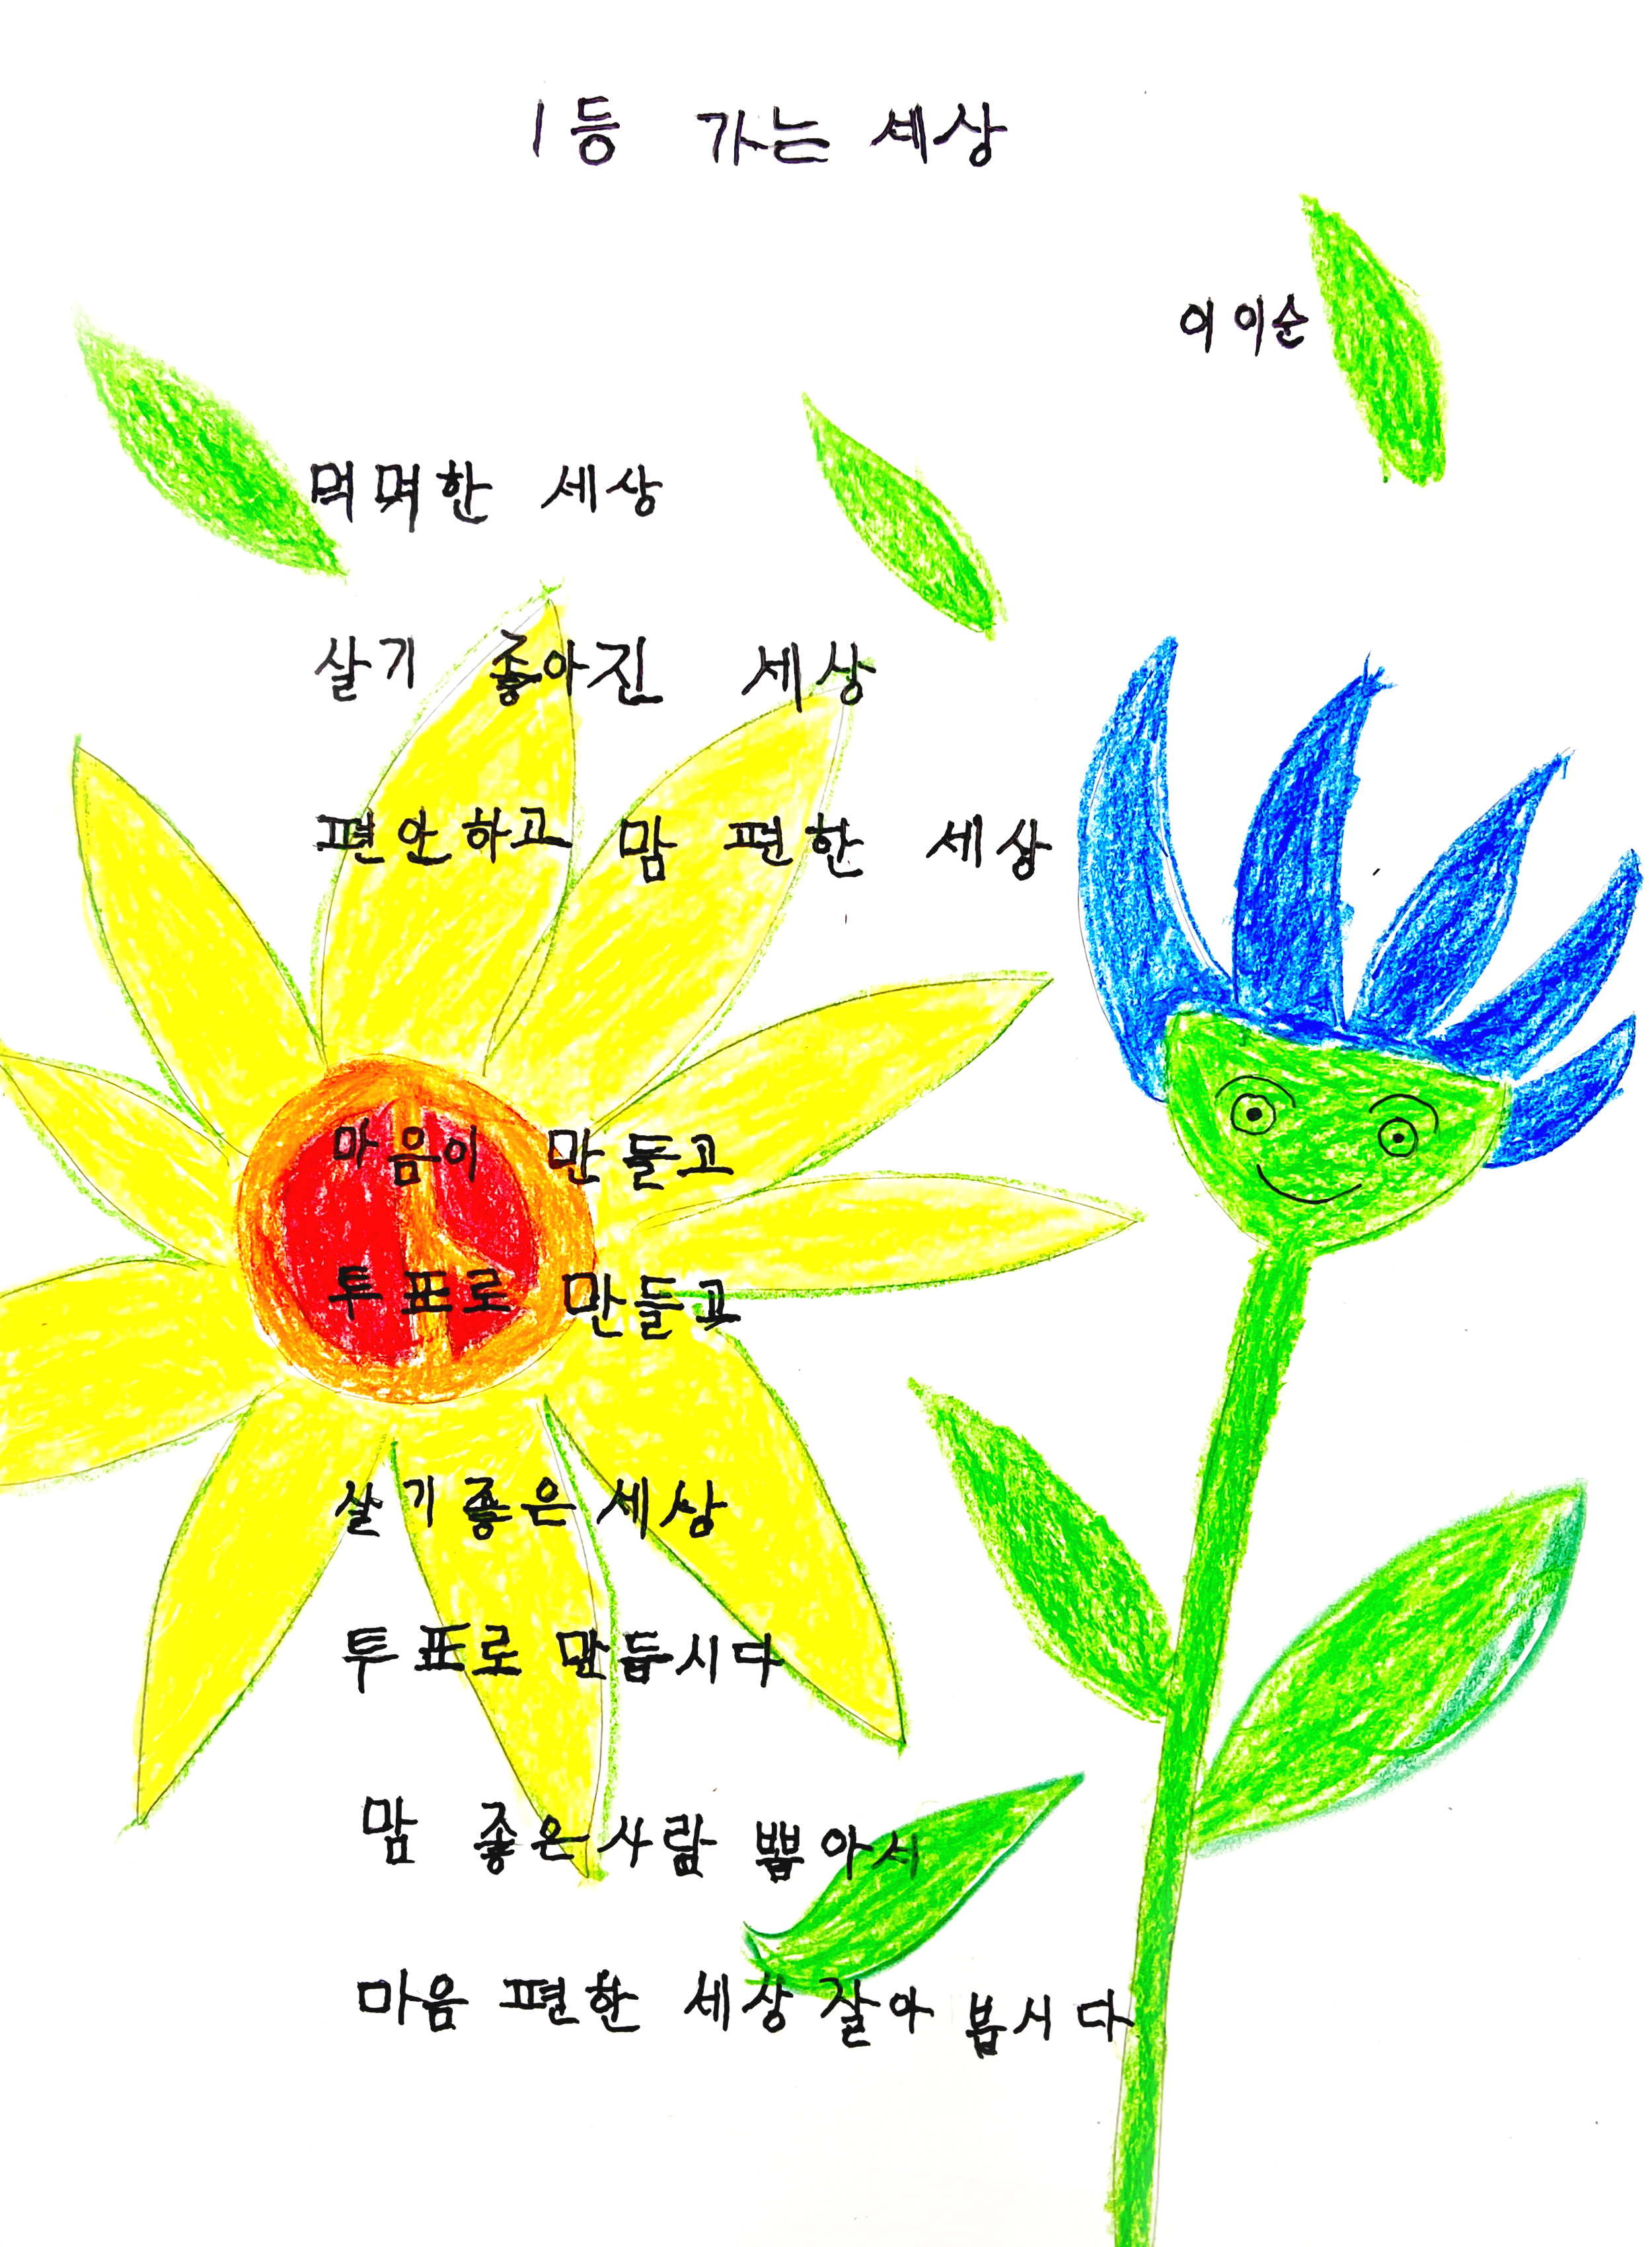 1등 가는 세상
이이순
먹먹한 세상
살기 좋아진 세상
편안하고 맘 편한 세상
마음이 만들고
투표로 만들고
살기좋은 세상
투표로 만듭시다
맘 좋은사람 뽑아서
마음 편한 세상 잘아 봅시다